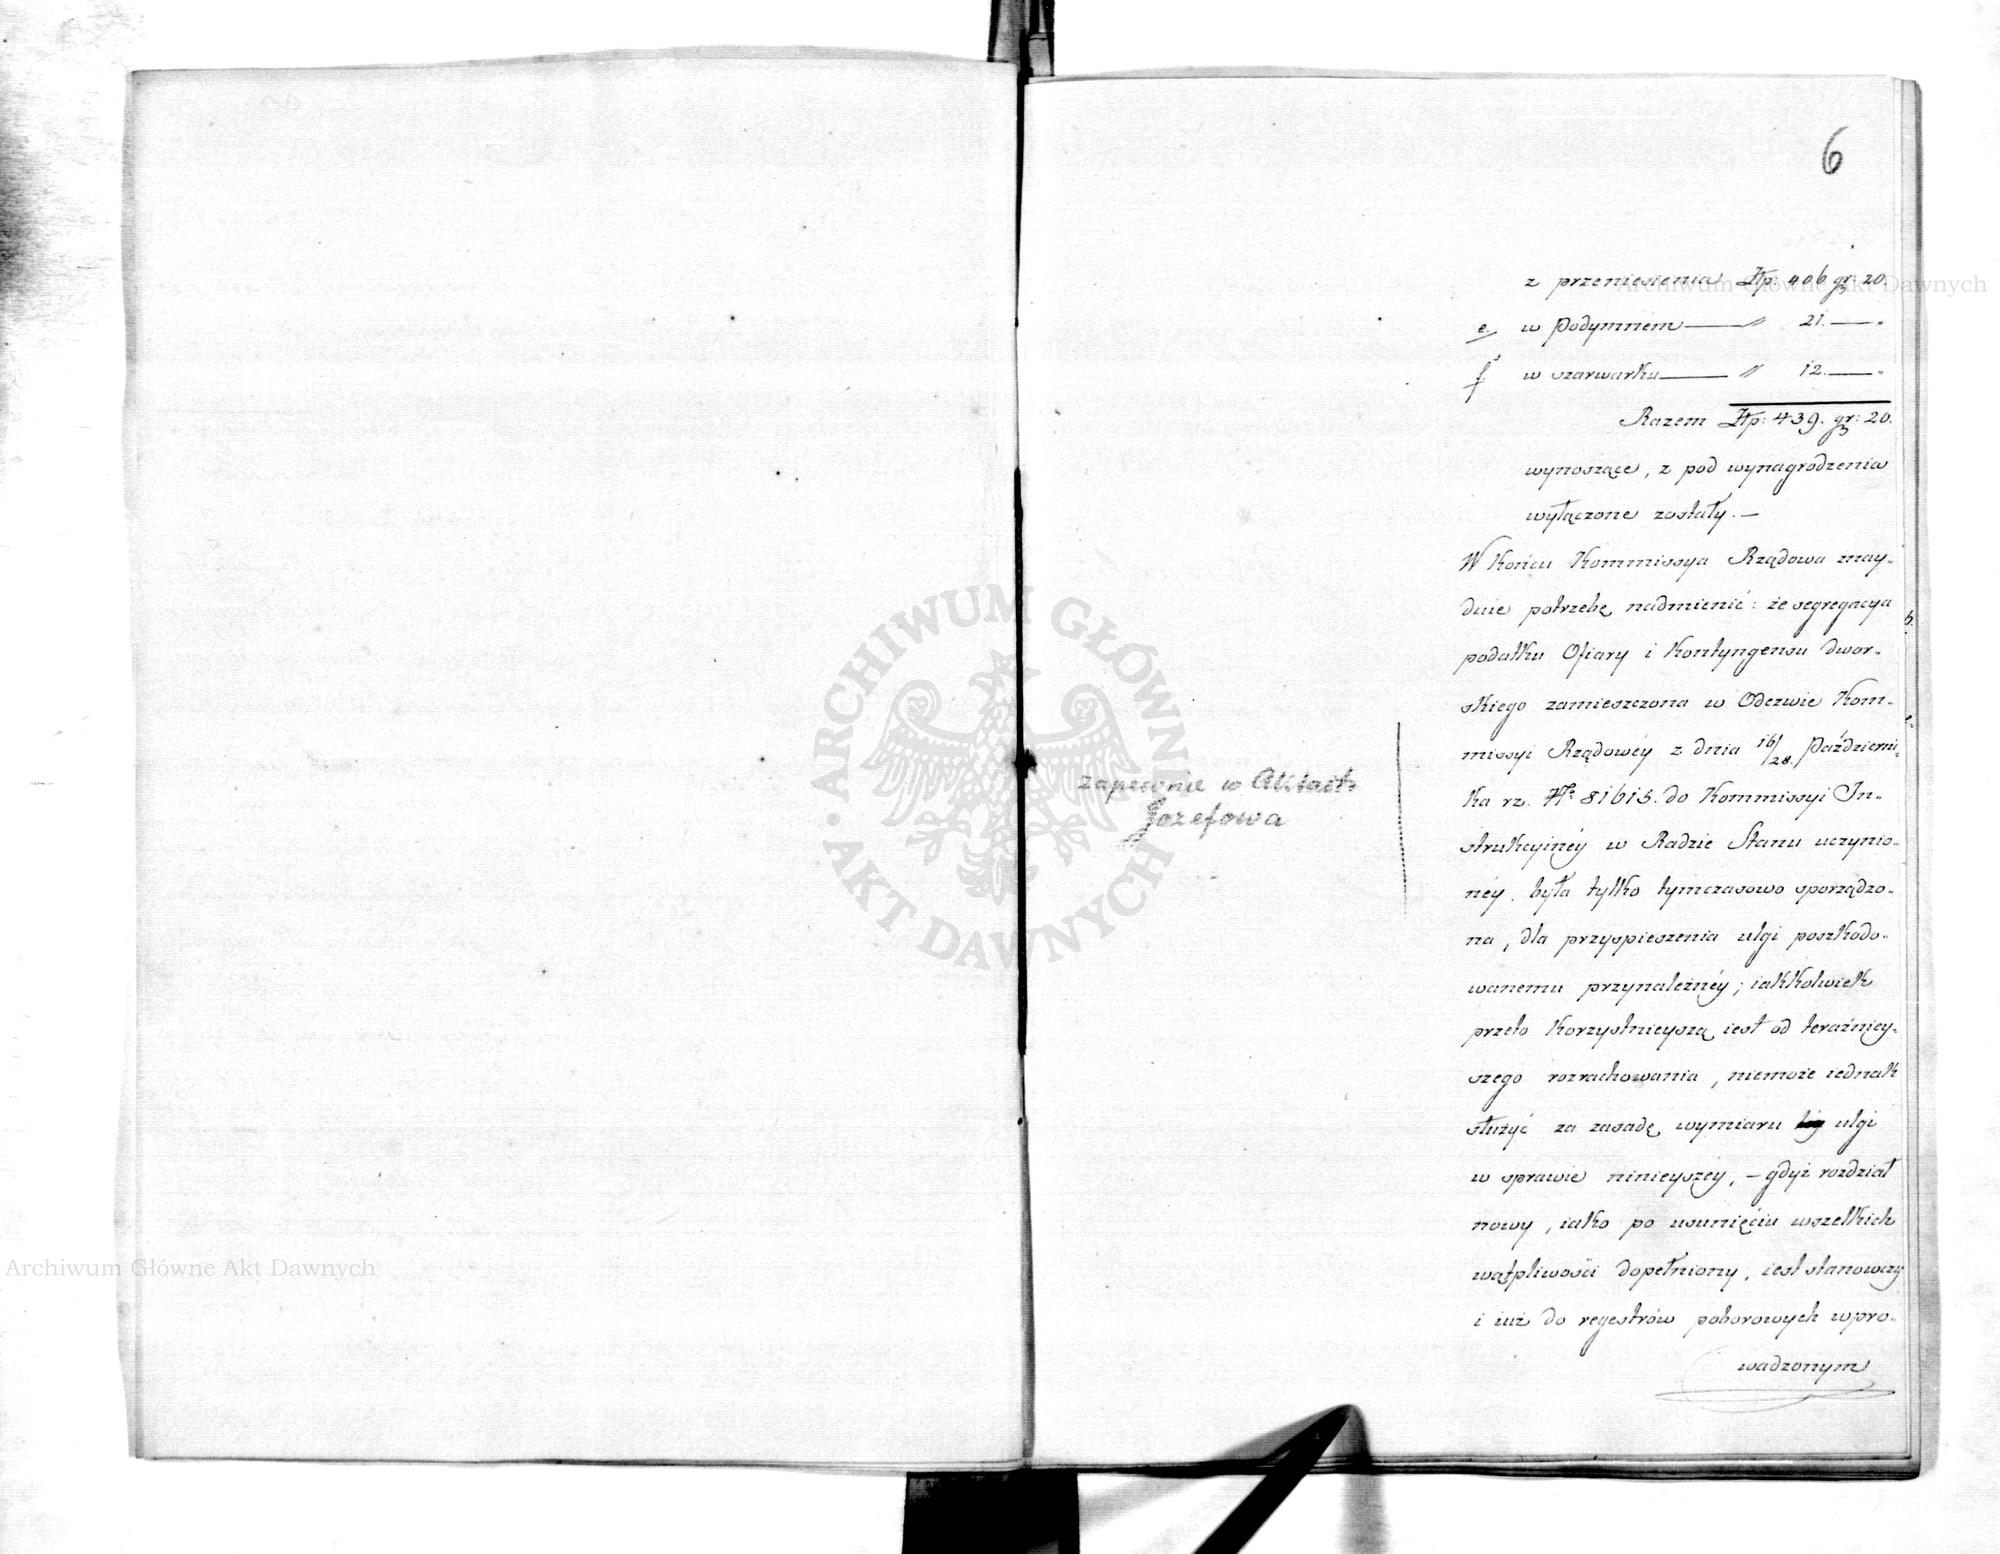 6
z przeniesienia Złp: 406 gr: 20.
e. w Podymniem —— " 21. —— "
f w szarwarku —— " 12. —— "
Razem Złp: 439. gr: 20.
wynoszące, z pod wynagrodzenia
wyłączone zostały. —
W końcu Kommissya Rządowa znay-
duie potrzebę nadmienić: że segregacya
podatku Ofiary i Kontyngensu dwor-
skiego zamieszczona w Odezwie Kom-
missyi Rządowéy z dnia 16/28. Październi-
ka rz. Nº 81615. do Kommissyi In-
strukcyinéy w Radzie Stanu uczynio-
néy, była tylko tymczasowo sporządzo-
na, dla przyspieszenia ulgi poszkodo-
wanemu przynależnéy; iakkolwiek
przeto korzystnieyszą iest od teraźniey-
szego rozrachowania, niemoże iednak
służyć za zasadę wymiaru ulgi
w sprawie ninieyszéy, — gdyż rozdział
nowy, iako po usunięciu wszelkich
wątpliwości dopełniony, iest stanowczy
i iuż do regestrów poborowych wpro-
wadzonym
zapewnie w Aktach
Jozefowa
ARCHIWUM GŁÓWNE
AKT DAWNYCH
Archiwum Główne Akt Dawnych
Archiwum Główne Akt Dawnych